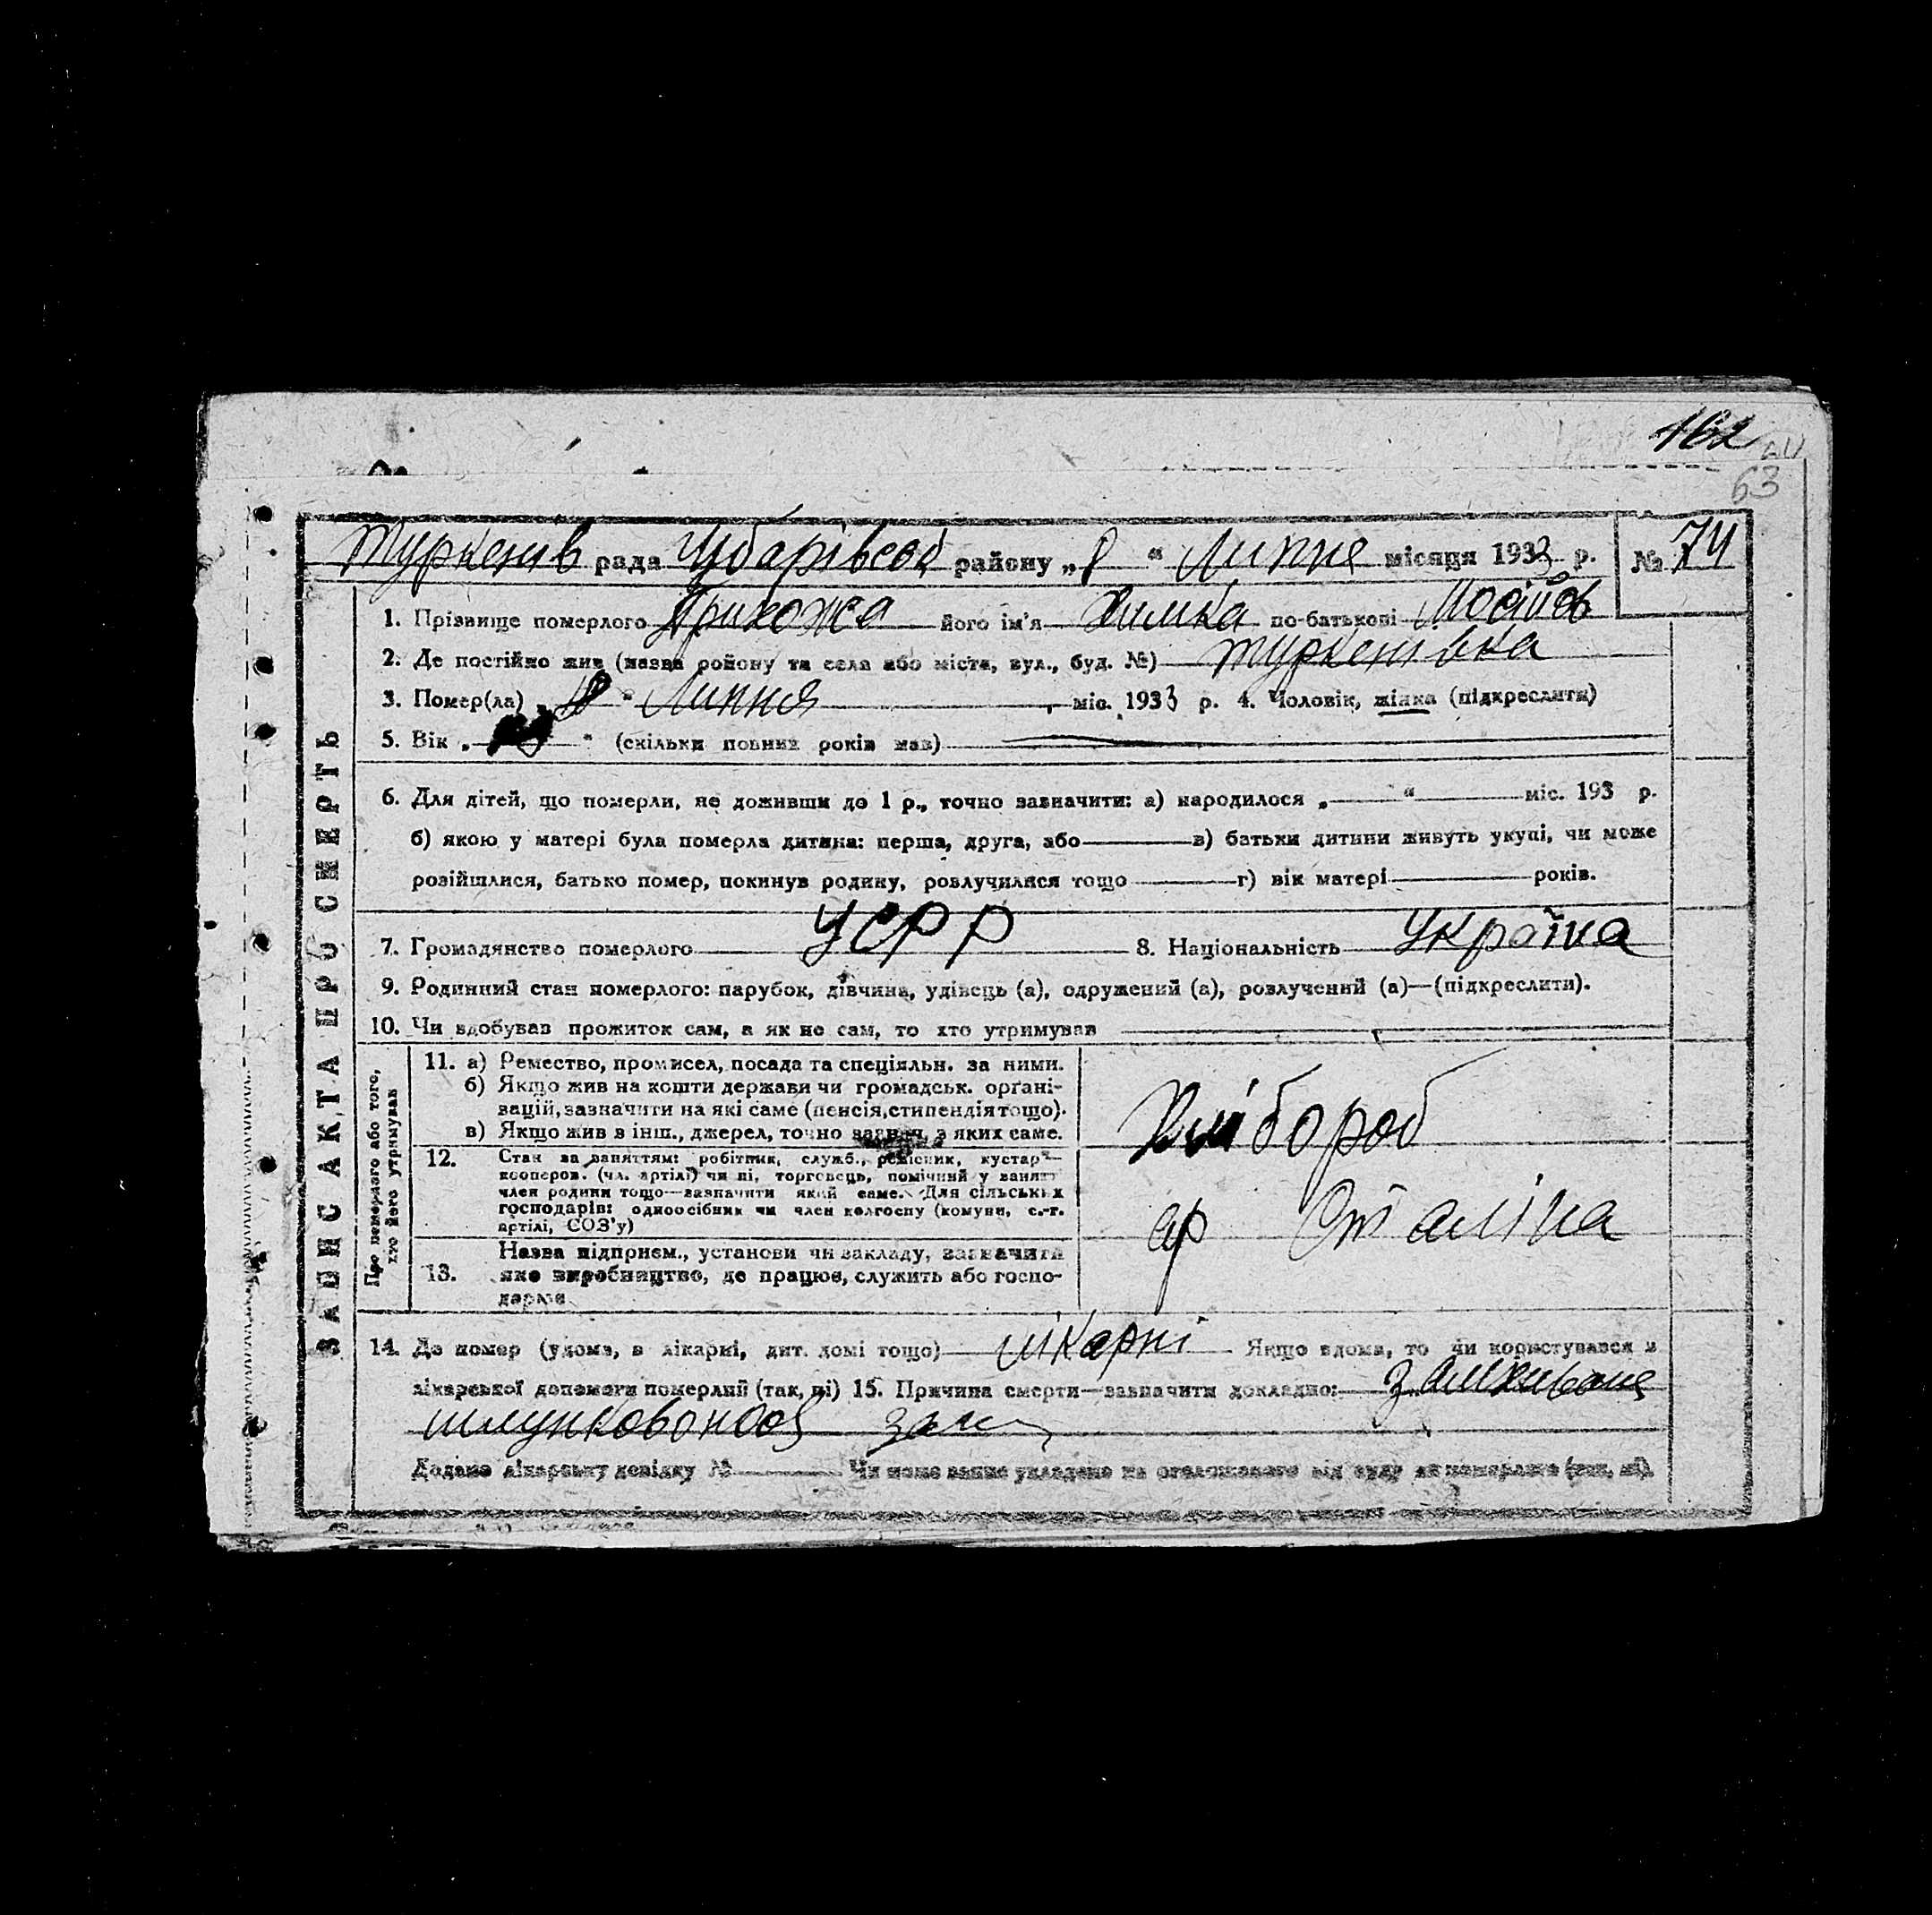 162
63
Туркенів рада Чубарівськ району „8 “ Липня місяця 1933 р. № 74
ЗАПИС АКТА ПРО СМЕРТЬ
1. Прізвище померлого Прихожа його ім'я Химка по-батькові Мосійов
2. Де постійно жив (назва району та села або міста, вул., буд. №) Туркенівка
3. Помер(ла) „8“ Липня міс. 1933 р. 4. Чоловік, жінка (підкреслити)
5. Вік „ “ (скільки повних років мав)
6. Для дітей, що померли, не доживши до 1 р., точно зазначити: а) народилося „ “ міс. 193 р.
б) якою у матері була померла дитина: перша, друга, або в) батьки дитини живуть укупі, чи може
розійшлися, батько помер, покинув родину, розлучилися тощо г) вік матері років.
7. Громадянство померлого УСРР 8. Національність Україна
9. Родинний стан померлого: парубок, дівчина, удівець (а), одружений (а), розлучений (а)—(підкреслити).
10. Чи здобував прожиток сам, а як не сам, то хто утримував
Про померлого або того, хто його утримував
11. а) Ремество, промисел, посада та спеціяльн. за ними.
б) Якщо жив на кошти держави чи громадськ. органі-
зацій, зазначити на які саме (пенсія, стипендія тощо).
в) Якщо жив в інш., джерел, точно зазнач, з яких саме.
Хлібороб
12. Стан за заняттям: робітник, служб., ремісник, кустар—
кооперов. (чл. артілі) чи ні, торговець, помічний у занятт
член родини тощо—зазначити який саме. Для сільських
господарів: одноосібник чи член колгоспу (комуни, с.-г.
артілі, СОЗ'у)
ар Сталіна
13. Назва підприєм., установи чи закладу, зазначити
яке виробництво, де працює, служить або госпо-
дарює
14. Де помер (удома, в лікарні, дит. домі тощо) лікарні Якщо вдома, то чи користувався з
лікарської допомоги померлий (так, ні) 15. Причина смерти—зазначити докладно:
Додано лікарську довідку № Чи може запис укладено на оголошеного від суду як померлого (так, ні).